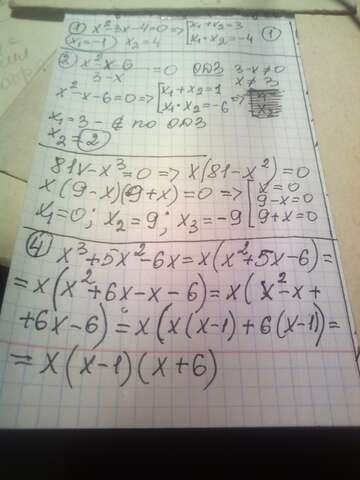 ① x²-3x-4=0 => [x₁+x₂=3 ①
x₁=-1) x₂=4 [x₁·x₂=-4
② x²-x-6 / 3-x =0 ОДЗ 3-x≠0
x≠3
x²-x-6=0 => [x₁+x₂=1
[x₁·x₂=-6 =>
x₁=3 - ∉ по ОДЗ
x₂=-2
81x-x³=0 => x(81-x²)=0
x(9-x)(9+x)=0 => [x=0
[9-x=0
x₁=0; x₂=9; x₃=-9 [9+x=0
④ x³+5x²-6x=x(x²+5x-6)=
=x(x²+6x-x-6)=x(x²-x+
+6x-6)=x(x(x-1)+6(x-1))=
=x(x-1)(x+6)